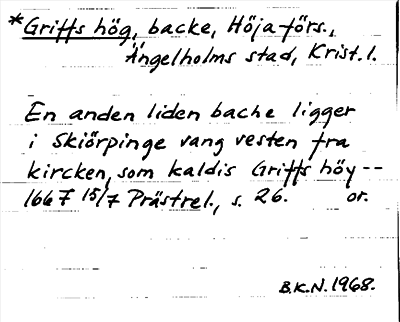 *Griffs hög, backe, Höja förs.,
Ängelholms stad, Krist. l.
En anden liden bache ligger
i Skiörpinge vang vesten fra
kircken, som kaldis Griffs höy --
1667 15/7 Prästrel., s. 26. or.
B.K.N. 1968.